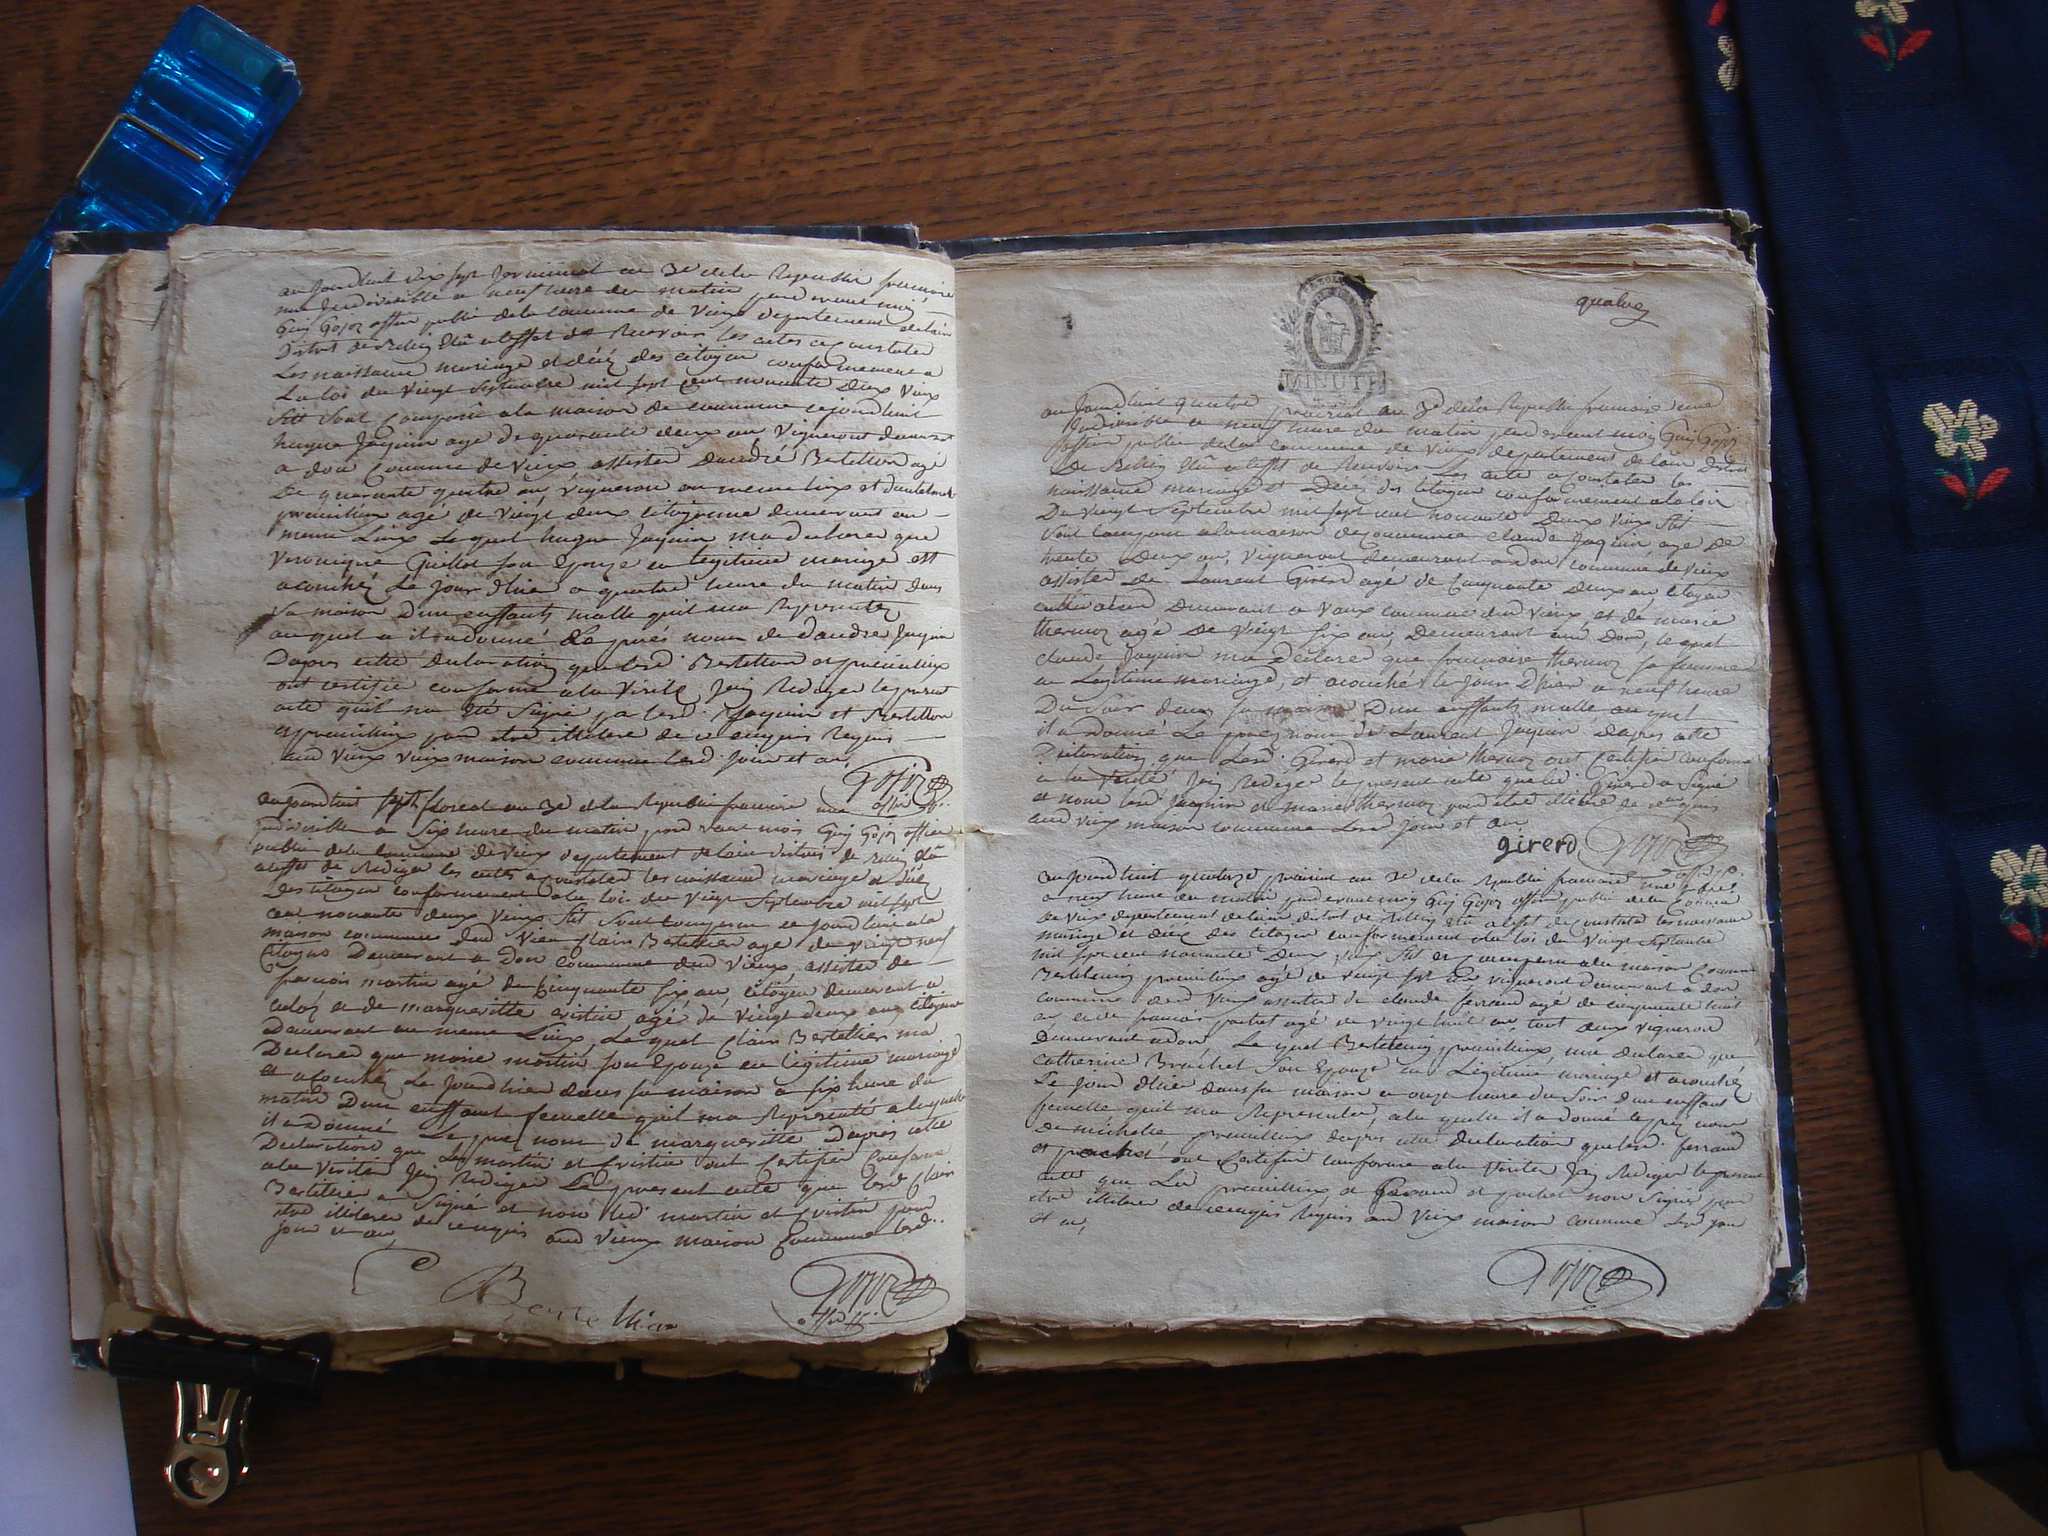 aujourdhuit dix sept germinal an 3e de la Republi francoise
une Jndivisible a neuf heure du matin pard evant moi
Guij Gojoz officie public dela commune de Vieux departement delain
District de Belley Elû a leffet de Recevoir les actes a constater
Les naissance mariage et décé des citoyen conformement a
La loi du Vingt Septembre mil sept cent nonante Deux Vieux
Stil Sont Comparû a la maison de commune cejourdhuit
hugue Jaquin age de quarante deux an Vigneront demeurant
a don Commune de Vieux assister dandré Bertillion agé
De quarante quatre an, Vigneron au meme Lieux et
premillieu agé de Vingt deux citoyenne demeurant au
meme Lieux Lequel hugue Jaquin ma declarer que
Veronique Guillot son Epouze en legitime mariage est
acouchéz Le jour Dhier a quatre heure du matin dans
Sa maison Dun enffants malle quil ma Represantéz
auquel a il a donné Le prés nom de dandre Jaquin
Dapres cette declaration que Lesd. Bertillion et premillieu
ont certifié conforme a la Verité, Jaij Rediger le present
acte quil na Eté Signé pa lesd. Jaquin et Bertillion
et premillieu pour etre illitere de ce enquis Requis
aud Vieux Vieux maison commune Lesd. Jour et an,
Gojoz
officie
aujourdhuit sept floreal an 3e de la Republi francoise une
jndivisible a Six heure du matin pard evant moi Guij Gojoz officie
public dela commune de Vieux departement delain district de Belley Elû
a leffet de Rediger les actes a constater les naissance mariage et décéz
Des citoyen conformement a la loi du Vingt Septembre mil sept
cent nonante deux Vieux Stil Sont Comparu ce jourdhuit a la
maison commune dud Vieux Clair Bertellier age de vingt neuf
Citoyen Demeurant a Don commune dud Vieux, assister de
francois martin agé de Cinquante six an, citoyen demeurant a
culoz et de margueritte cristin agé de Vingt deux ans citoyenne
Demeurant au meme Lieux, Le quel Clair Bertellier ma
Declarer que marie martin son Epouze en legitime mariage
et acouchéz Le Jourdhier dans sa maison a six heure du
matin Dun enffant femelle quil ma Represanté a laquelle
il a Donné Le pré nom de margueritte Dapres cette
Declaration que Les martin et Cristin ont Certifier Conforme
a la Veritée Jaij Rediger Le present acte que lesd Clair
Bertellier a Signé et non led martin et Cristin pour
etre illiterer de ce enquis aud Vieux maison Commune lesd..
jour et an,
Bertellier
Gojoz
officie
quatres
MINUTE
aujourdhuit quatre prairial an 3e dela Republi francoise une
Jndivisible a neuf heure du matin pard evant moij Guij Gojoz
officie public dela commune de Vieux departement delain District
de Belley Elû a leffet de Recevoir Les acte a constater les
naissance mariage et Décés des Citoyen conformement a la loix
Du Vingt Septembre mil sept cent nonante Deux Vieux Stil
Sont comparu a la maison de commune claude Jaquin age de
trente Deux an, Vigneront demeurant a don commune de Vieux
assister de Laurent Girerd agé de Cinquante Deux an, citoyen
cultivateur Demeurant a Vaux commune dud Vieux, et de marie
thermoz agé de Vingt Six an, Demeurant aud Don, le quel
claude Jaquin ma Déclaré que francoise thermoz sa femme
en Legitime mariage, et acouchéz le Jour Dhier a neuf heure
Du Soir dans sa maison Dun enffants malle auquel
il a Donné Le prez nom de Laurent Jaquin Dapres cette
Déclaration que Lesd. Girerd et marie thermoz ont Certifier conforme
a la Verité Jaij Rediger le present acte que led. Girerd a Signé
et nom lesd Jaquin et marie thermoz pour etre illitere de ce enquis
aud Vieux maison commune Lesd Jour et an
girerd
Gojoz
officie
aujourdhuit quatorze prairial an 3e dela Republi francoise une
a neuf heure du matin pard evant moij Guij Gojoz officie public dela Commune
de Vieux departement delain district de Belley Elû a leffet de Constater les naissance
mariage et décéz des Citoyen conformement a la loi du Vingt Septembre
mil sept cent nonante Deux vieux Stil et comparu a la maison Commune
Bertelemij premillieux agé de vingt sept an Vigneront demeurant a don
commune dud Vieux assister de claude ferrand agé de cinquante huit
an et de francois pochet agé de vingt huit an tout deux vigneron
Demeurant a don Le quel Bertelemij premillieux, ma declarer que
Catherine Brachet Son Epouze en Legitime mariage et acouchéz
Le Jour dhier dans sa maison a onze heure du Soir dun enffant
femelle quil ma Represanter, a la quelle il a donné le prez nom
de michelle premillieux dapres cette declaration que lesd. ferrand
et pochet ont Certifier conforme a la Veriter Jaij Rediger le present
acte que Led premillieux et ferrand et pochet non Signes pour
etre illitere de ce enquis Requis aud Vieux maison commune lesd jour
et an,
Gojoz